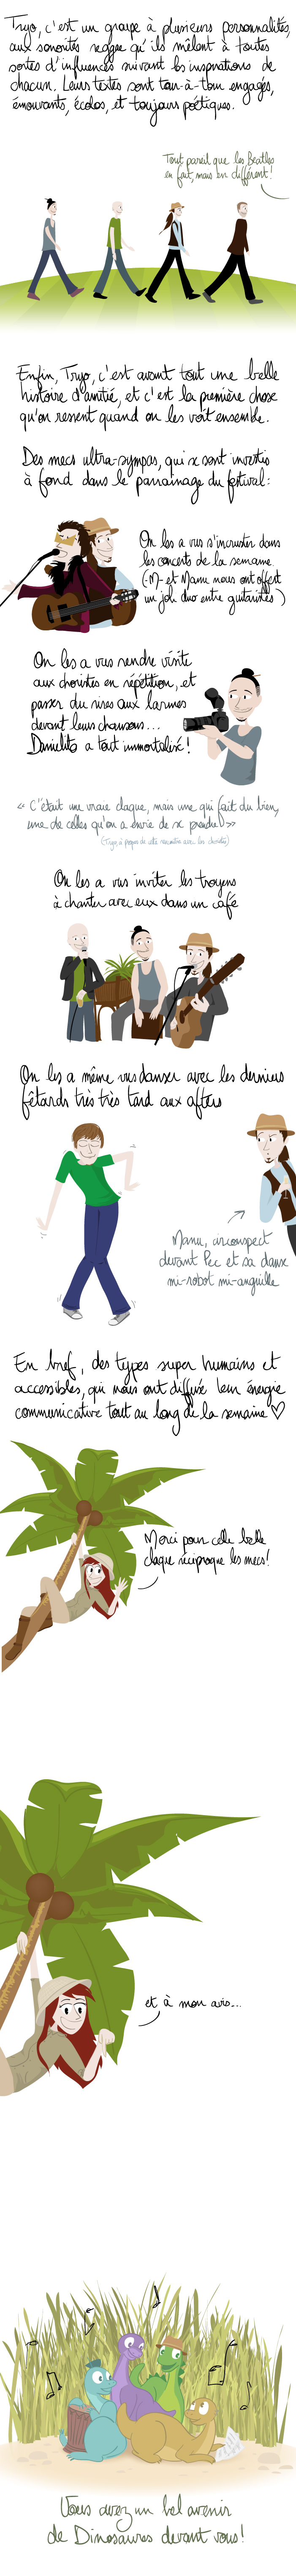 Tryo, c'est un groupe à plusieurs personnalités,
aux sonorités reggae qu'ils mêlent à toutes
sortes d'influences suivant les inspirations de
chacun. Leurs textes sont tour-à-tour engagés,
émouvants, écolos, et toujours poétiques.
Tout pareil que les Beatles
en fait, mais en différent!
Enfin, Tryo, c'est avant tout une belle
histoire d'amitié, et c'est la première chose
qu'on ressent quand on les voit ensemble.
Des mecs ultra-sympas, qui se sont investis
à fond dans le parrainage du festival:
On les a vus s'incruster dans
les concerts de la semaine.
(-M- et Manu nous ont offert
un joli duo entre guitaristes)
On les a vus rendre visite
aux choristes en répétition, et
passer du rires aux larmes
devant leurs chansons...
Danielito a tout immortalisé!
« C'était une vraie claque, mais une qui fait du bien,
une de celles qu'on a envie de se prendre »
(Tryo, à propos de cette rencontre avec les choristes)
On les a vus inviter les troyens
à chanter avec eux dans un café
On les a même vus danser avec les derniers
fêtards très très tard aux afters
Manu, circonspect
devant Pec et sa danse
mi-robot mi-anguille
En bref, des types super humains et
accessibles, qui nous ont diffusé leur énergie
communicative tout au long de la semaine ♡
Merci pour cette belle
claque réciproque les mecs!
et à mon avis...
Vous avez un bel avenir
de Dinosaures devant vous!